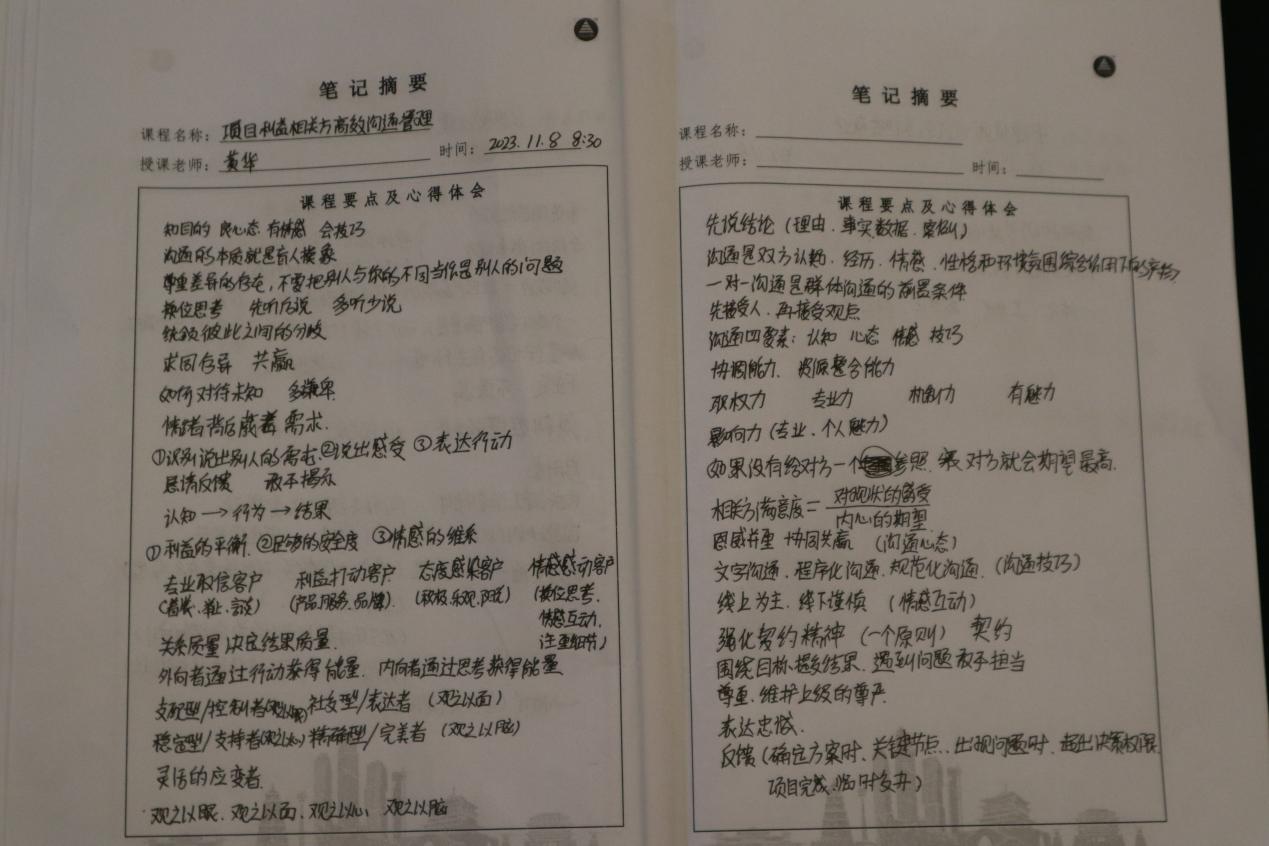 笔记摘要
课程名称：项目利益相关方高效沟通管理
授课老师：黄华 时间：2023.11.8 8:30
课程要点及心得体会
知目的 良心态 有情感 会技巧
沟通的本质就是盲人摸象
尊重差异的存在，不要把别人与你的不同当作是别人的问题
换位思考 先听后说 多听少说
统领彼此之间的分歧
求同存异 共赢
如何对待未知 多谦卑
情绪背后藏着需求.
①识别说出别人的需求 ②说出感受 ③表达行动
恳请反馈 敢于揭示
认知→行为→结果
①利益的平衡 ②足够的安全度 ③情感的维系
专业取信客户 利益打动客户 态度感染客户 情感感动客户
(着装、举止、言谈) (产品、服务、品牌) (积极、乐观、阳光) (换位思考、
情感互动、
关系质量决定结果质量. 注重细节)
外向者通过行动获得能量. 内向者通过思考获得能量
支配型/控制者(观以眼) 社交型/表达者 (观之以面)
稳定型/支持者(观之以心) 精确型/完美者 (观之以脑)
灵活的应变者.
观之以眼、观之以面、观之以心、观之以脑
笔记摘要
课程名称：
授课老师： 时间：
课程要点及心得体会
先说结论 (理由、事实数据、案例)
沟通是双方认知、经历、情感、性格和环境氛围综合作用下的产物
一对一沟通是群体沟通的前置条件
先接受人、再接受观点
沟通四要素：认知 心态 情感 技巧
协调能力、资源整合能力
职权力 专业力 有魅力
影响力 (专业、个人魅力)
如果没有给对方一个参照, 对方就会期望最高.
相关方满意度= 对现状的感受
内心的期望
恩威并重 协同共赢 (沟通心态)
文字沟通、程序化沟通、规范化沟通、(沟通技巧)
线上为主、线下谨慎 (情感互动)
强化契约精神 (一个原则) 契约
围绕目标、提交结果、遇到问题敢于担当
尊重、维护上级的尊严
表达忠诚.
反馈 (确定方案时、关键节点、出现问题时、超出决策权限
项目完成、临时多并)